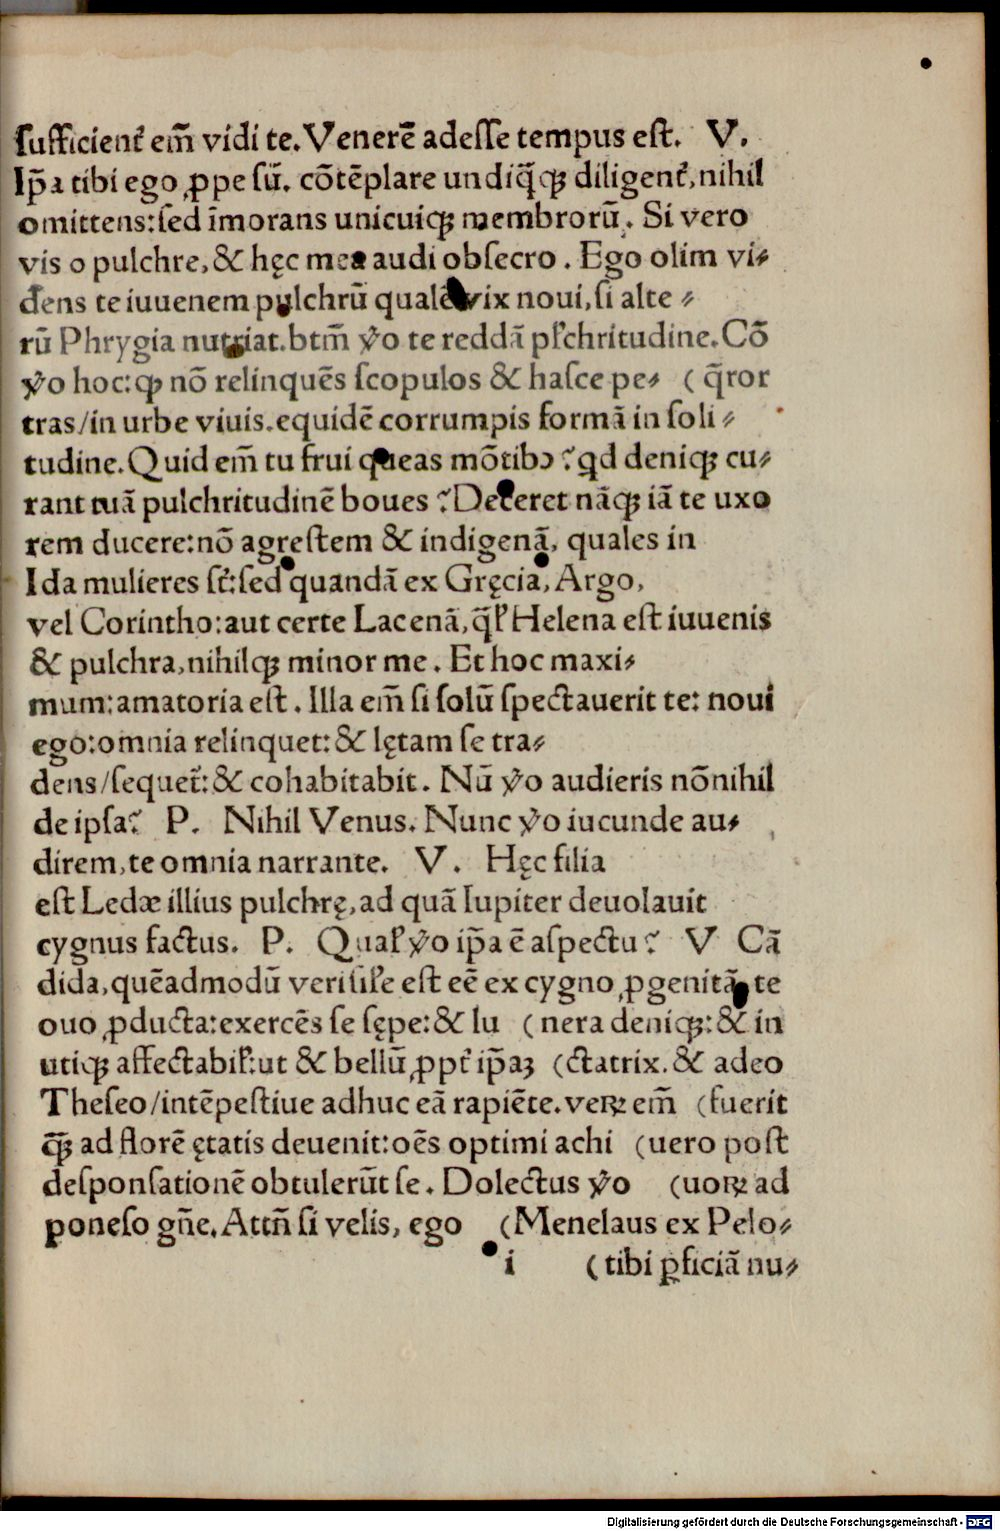 ſufficient̃ em̃ vidi te. Venerẽ adeſſe tempus eſt. V.
Ip̃a tibi ego ꝓpe ſũ. cõtẽplare undiq̃ꝗ diligent̃, nihil
omittens: ſed ĩmorans unicuiqꝫ membrorũ. Si vero
vis o pulchre, & hęc mea audi obſecro. Ego olim vi⸗
dens te iuuenem pulchrũ qualẽ vix noui, ſi alte⸗
rũ Phrygia nutriat. btm̃ v̾o te reddã pl̾chritudine. Cõ
v̾o hoc: qꝫ nõ relinquẽs ſcopulos & haſce pe⸗ (q̃ror
tras/in urbe viuis. equidẽ corrumpis formã in ſoli⸗
tudine. Quid em̃ tu frui queas mõtibꝰ? qd deniqꝫ cu⸗
rant tuã pulchritudinẽ boues? Deceret nãqꝫ iã te uxo
rem ducere: nõ agreſtem & indigenã, quales in
Ida mulieres ſt̃: ſed quandã ex Gręcia, Argo,
vel Corintho: aut certe Lacenã, q̃l̾ Helena eſt iuuenis
& pulchra, nihilqꝫ minor me. Et hoc maxi⸗
mum: amatoria eſt. Illa em̃ ſi ſolũ ſpectauerit te: noui
ego: omnia relinquet: & lętam ſe tra⸗
dens/ſequet᷑: & cohabitabit. Nũ v̾o audieris nõnihil
de ipſa? P. Nihil Venus. Nunc v̾o iucunde au⸗
direm, te omnia narrante. V. Hęc filia
eſt Ledæ illius pulchrę, ad quã Iupiter deuolauit
cygnus factus. P. Qual̾ v̾o ip̃a ẽ aſpectu? V Cã
dida, quẽadmodũ veriſil̾e eſt eẽ ex cygno ꝓgenitã, te
ouo ꝓducta: exercẽs ſe ſępe: & lu (nera deniqꝫ: & in
utiqꝫ affectabil̾: ut & bellũ ꝓpt̾ ip̃aꝫ (ctatrix. & adeo
Theſeo/intẽpeſtiue adhuc eã rapiẽte. veꝝ em̃ (fuerit
q̃ꝫ ad florẽ ętatis deuenit: oẽs optimi achi (uero poſt
deſponſationẽ obtulerũt ſe. Dolectus v̾o (uoꝝ ad
poneſo gñe. Attñ ſi velis, ego (Menelaus ex Pelo⸗
i (tibi ꝑficiã nu⸗
Digitalisierung gefördert durch die Deutsche Forschungsgemeinschaft - DFG